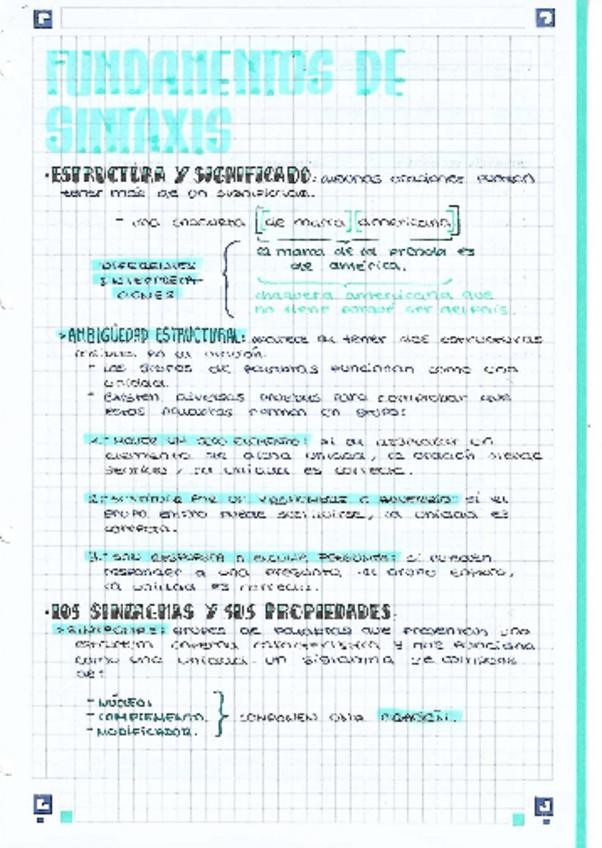 FUNDAMENTOS DE
SINTAXIS
·ESTRUCTURA Y SIGNIFICADO: algunas oraciones pueden
tener más de un significado.
- una chaqueta [de mama] [americana]
DIFERENTES
INTERPRETA
CIONES
la mama de la prenda es
de américa.
chaqueta americana que
no tiene porqué ser del país.
>AMBIGÜEDAD ESTRUCTURAL: al tener dos estructuras
en su
- Los grupos de palabras funcionan como una
unidad.
- Existen diversas pruebas para comprobar que
estas palabras forman un grupo:
1.- MOVER UN SOLO ELEMENTO: si al un
elemento de dicha unidad, la oración
sentido, la unidad es correcta.
2.- SUSTITUIR POR UN PRONOMBRE O ADVERBIO: si el
grupo entero puede sustituirse, la unidad es
correcta.
3.- SON RESPUESTA A ALGUNA PREGUNTA: si pueden
responder a una pregunta el grupo entero,
la unidad es correcta.
·LOS SINTAGMAS Y SUS PROPIEDADES.
>SINTAGMAS: grupos de palabras que presentan una
estructura interna característica y que funciona
como una unidad. un sintagma se compone
de:
- NÚCLEO.
- COMPLEMENTO.
- MODIFICADOR.
COMPONEN UNA ORACIÓN.